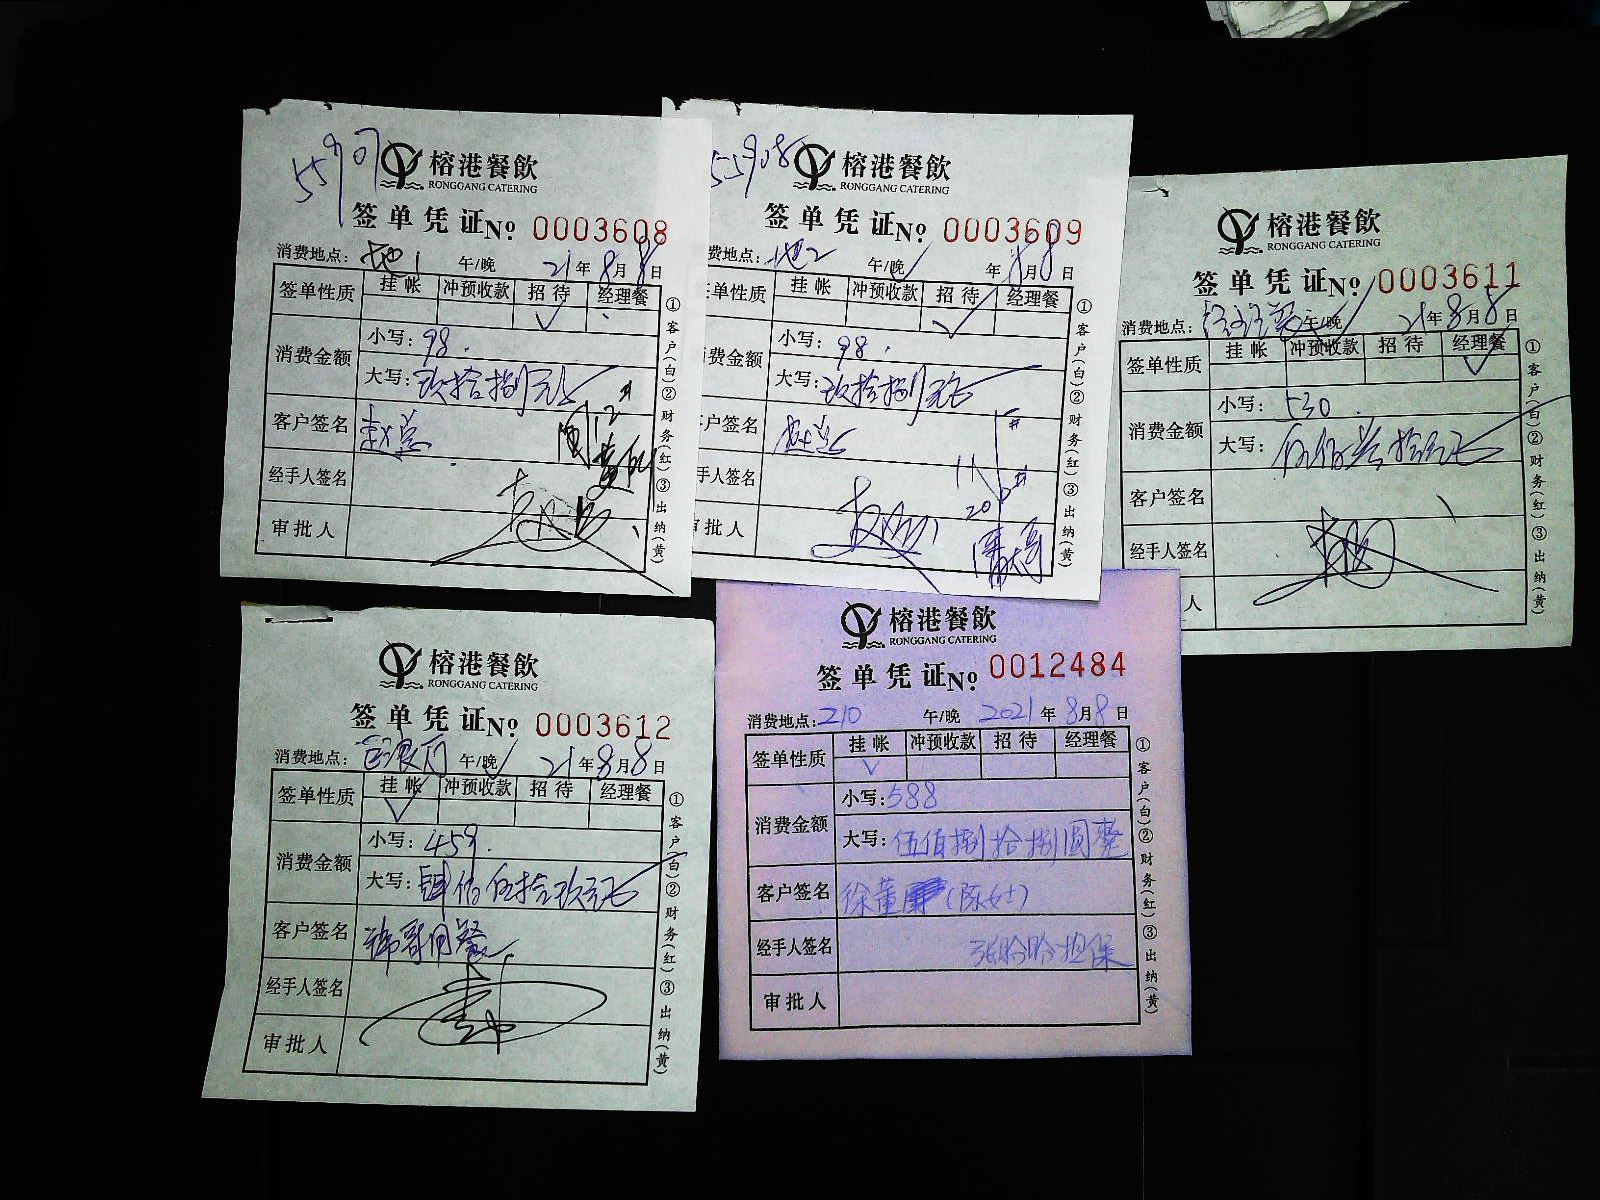 55907
榕港餐飲
RONGGANG CATERING
签单凭证 № 0003608
消费地点: 地1 午/晚 21年8月8日
签单性质 挂帐 冲预收款 招待 经理餐
✓
消费金额 小写: 98.
大写: 玖拾捌元
客户签名 赵总
经手人签名
审批人
①客户(白)②财务(红)③出纳(黄)
55908
榕港餐飲
RONGGANG CATERING
签单凭证 № 0003609
费地点: 地2 午/晚 年8月8日
单性质 挂帐 冲预收款 招待 经理餐
✓
费金额 小写: 98.
大写: 玖拾捌元
户签名 赵总
手人签名
审批人
①客户(白)②财务(红)③出纳(黄)
榕港餐飲
RONGGANG CATERING
签单凭证 № 0003611
消费地点: 午/晚 21年8月8日
签单性质 挂帐 冲预收款 招待 经理餐
✓
消费金额 小写: 530.
大写: 伍佰叁拾元
客户签名
经手人签名
人
①客户(白)②财务(红)③出纳(黄)
榕港餐飲
RONGGANG CATERING
签单凭证 № 0003612
消费地点: 午/晚 21年8月8日
签单性质 挂帐 冲预收款 招待 经理餐
✓
消费金额 小写: 459.
大写: 肆佰伍拾玖元
客户签名
经手人签名
审批人
①客户(白)②财务(红)③出纳(黄)
榕港餐飲
RONGGANG CATERING
签单凭证 № 0012484
消费地点: 210 午/晚 2021年8月8日
签单性质 挂帐 冲预收款 招待 经理餐
✓
消费金额 小写: 588
大写: 伍佰捌拾捌圆整
客户签名 徐董 (陈女士)
经手人签名 张盼盼担保
审批人
①客户(白)②财务(红)③出纳(黄)